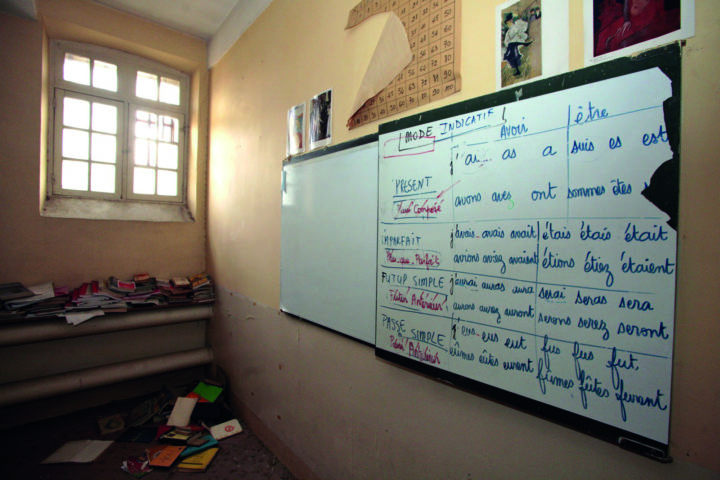 MODE INDICATIF
AVOIR être
ai as a suis es est
PRESENT
Passé Composé avons avez ont sommes êtes
IMPARFAIT j'avais avais avait étais étais était
Plus-que-Parfait avions aviez avaient étions étiez étaient
FUTUR SIMPLE j'aurai auras aura serai seras sera
Futur Antérieur aurons aurez auront serons serez seront
PASSE SIMPLE j'eus eus eut fus fus fut
Passé Antérieur eûmes eûtes eurent fûmes fûtes furent